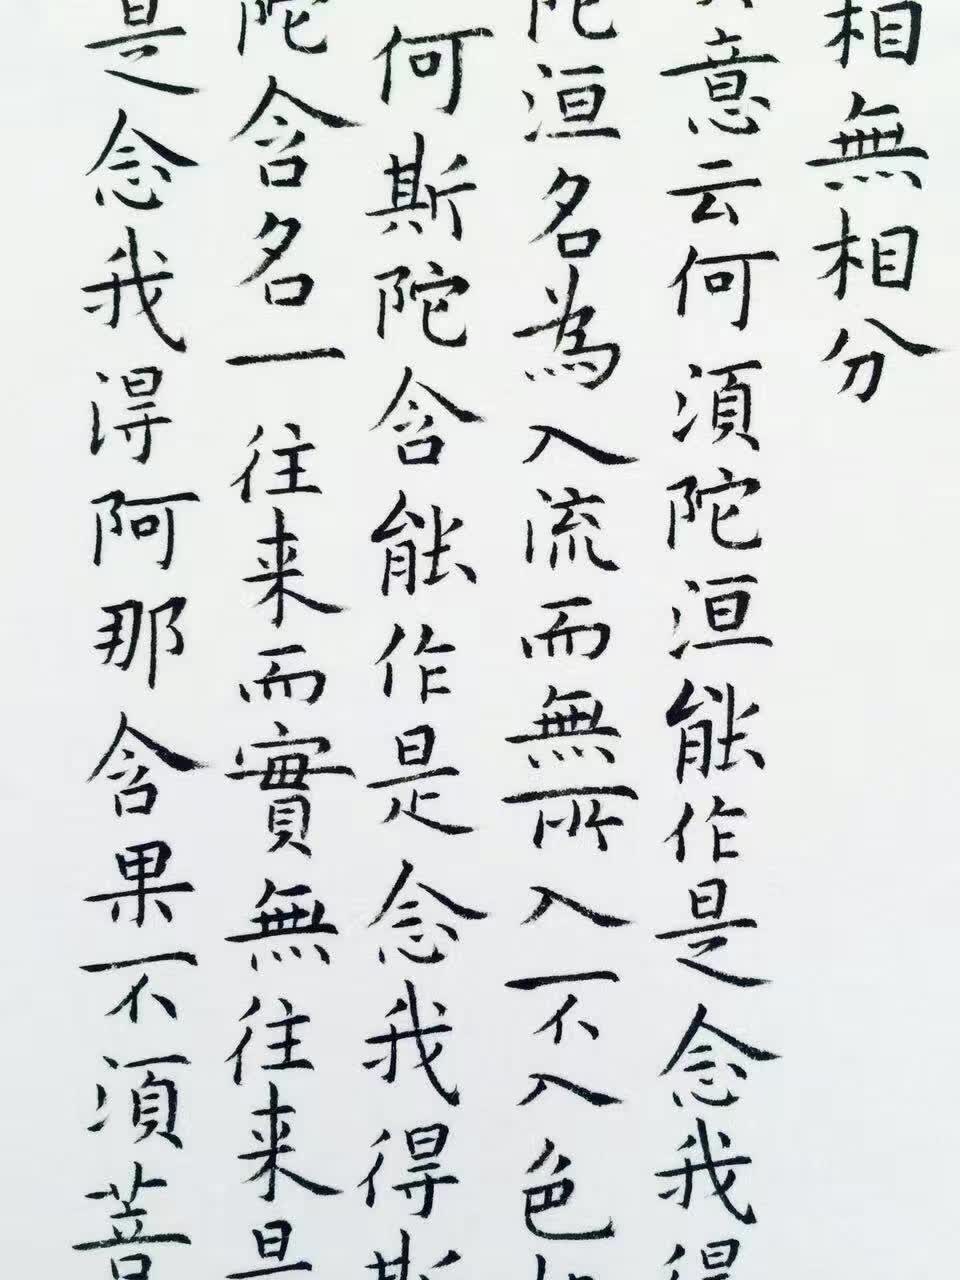 相無相分
意云何須陀洹能作是念我得
陀洹名為入流而無所入不入色
何斯陀含能作是念我得斯
陀含名一往来而實無往来是
是念我得阿那含果不須菩